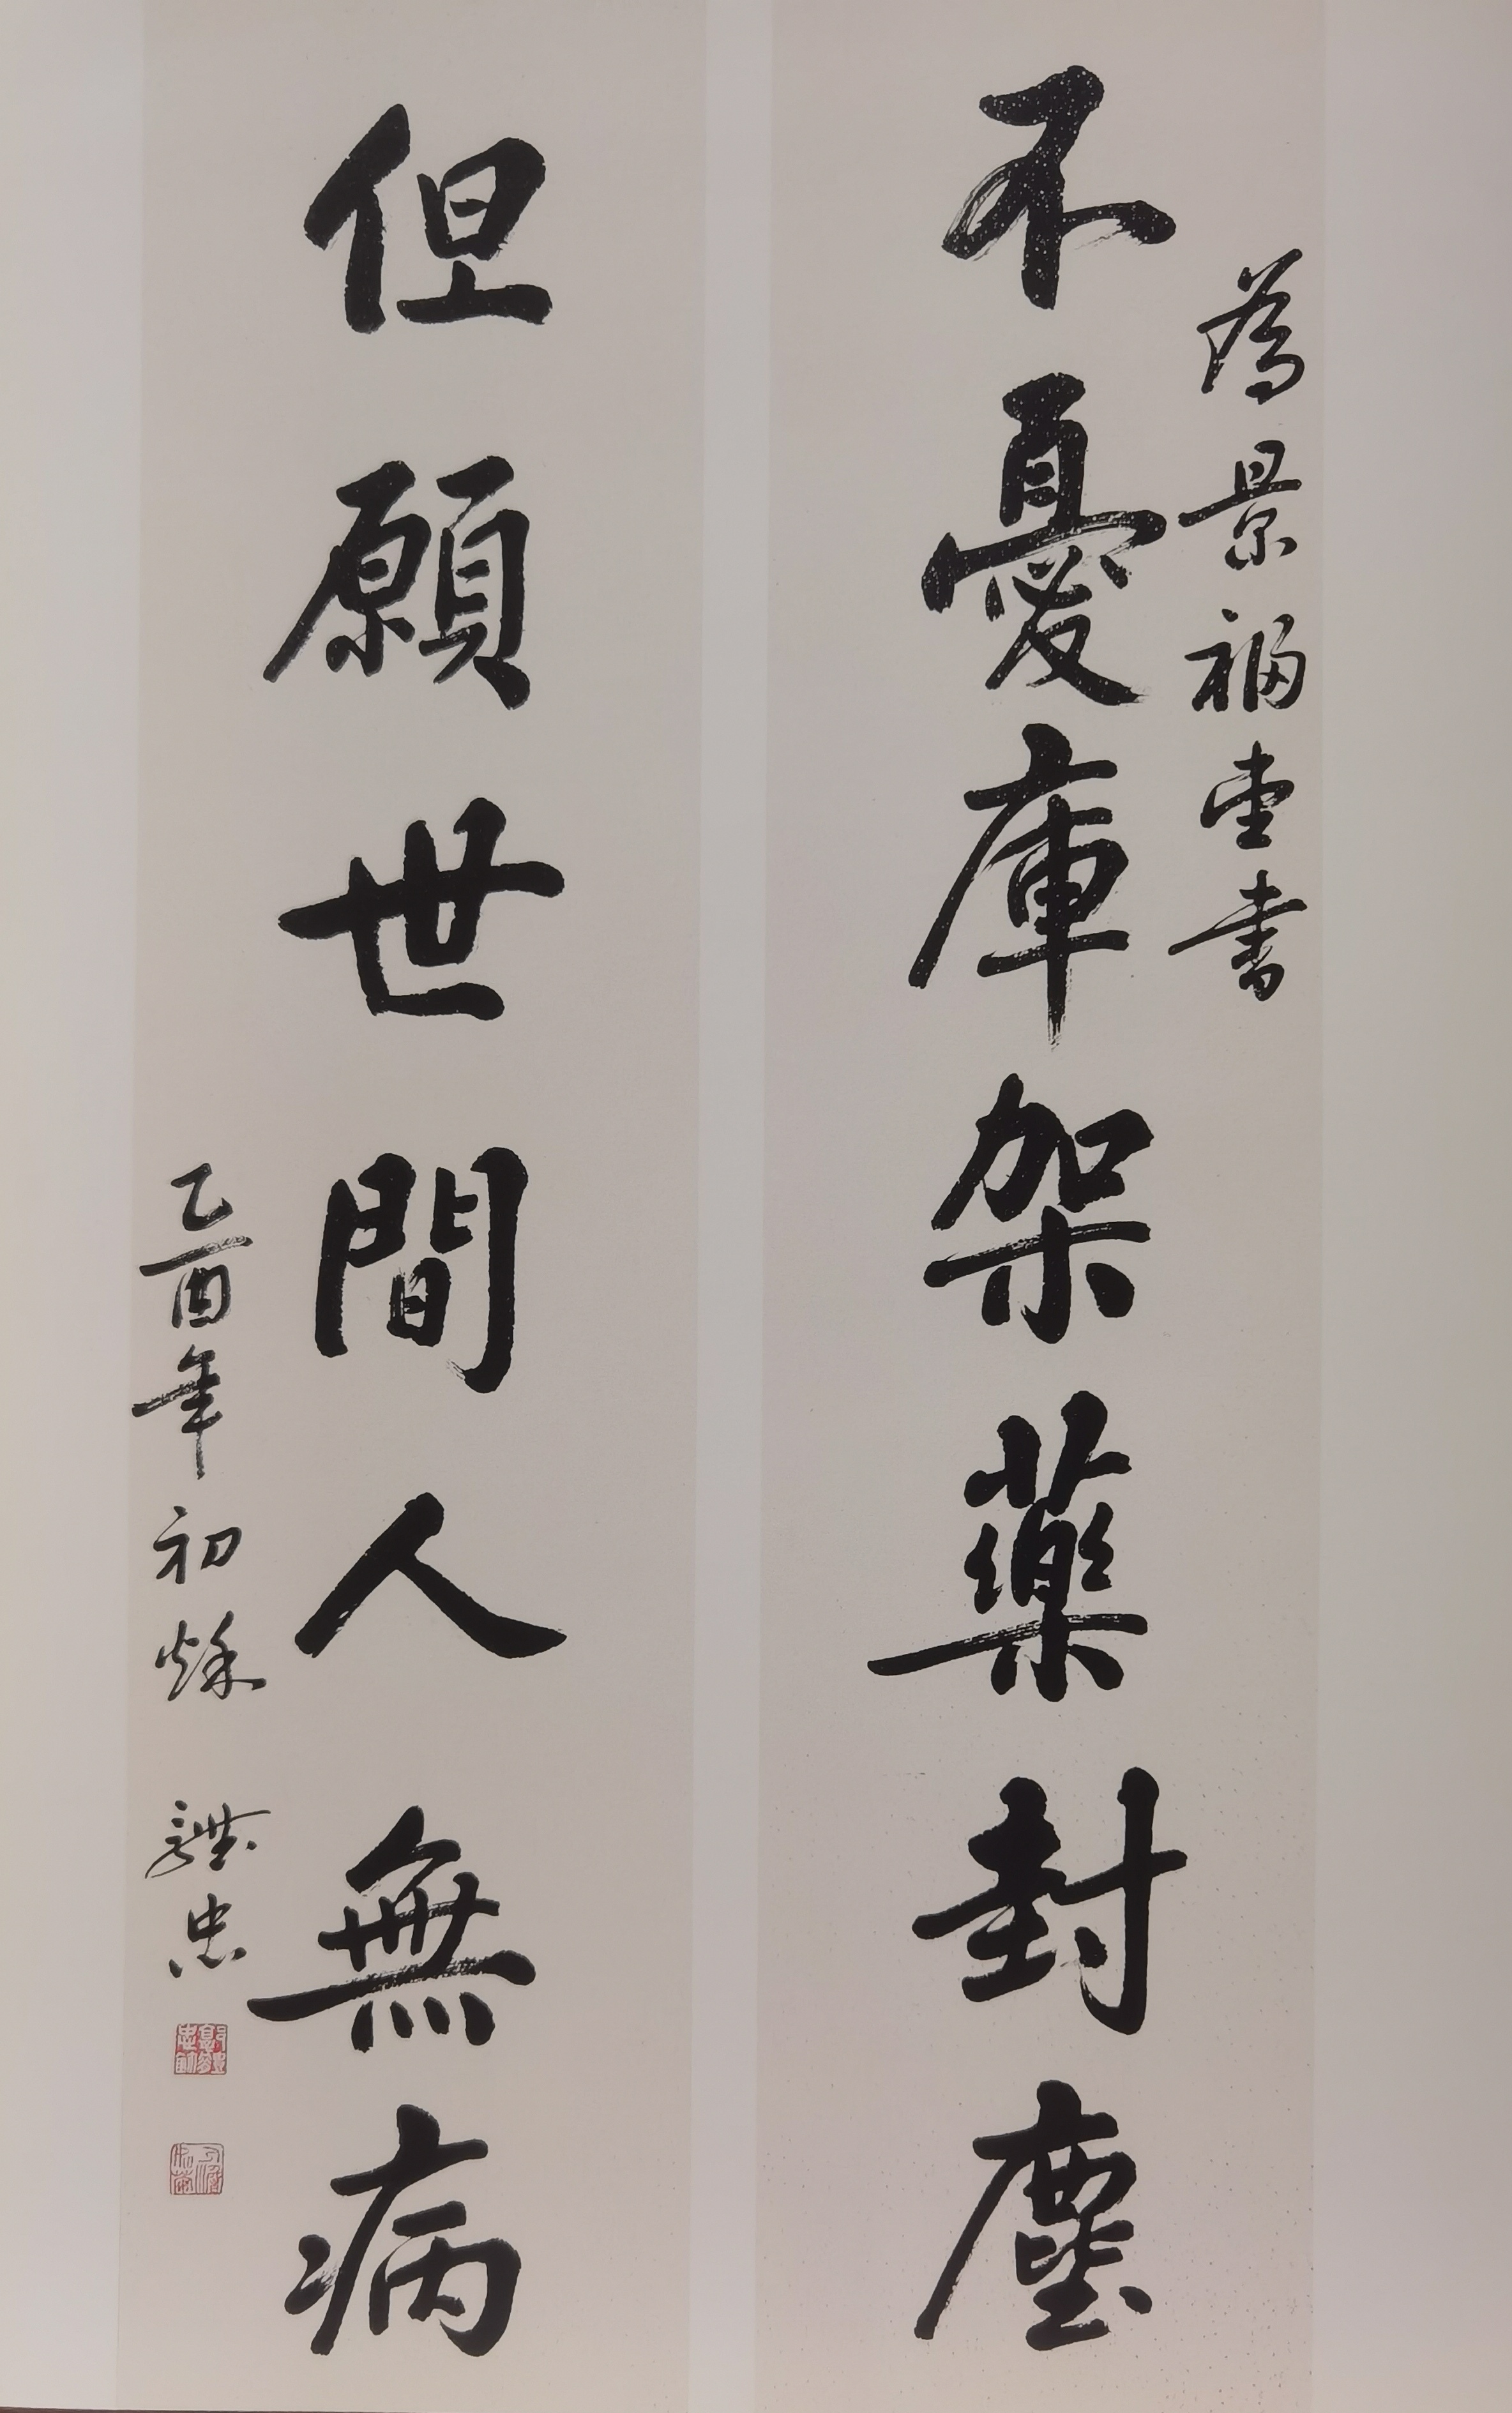 為景福堂書
不憂庫架藥封塵
但願世間人無病
乙酉年初秌